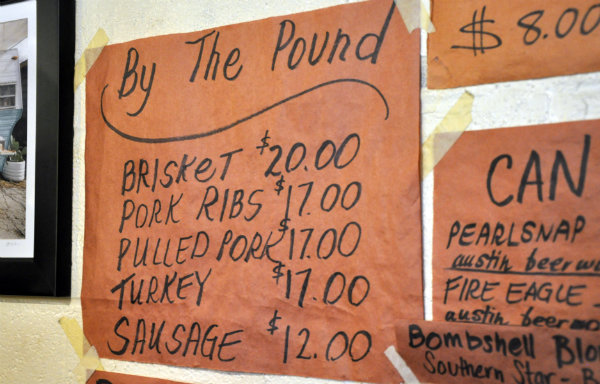 By The Pound
BRISKET $20.00
PORK RIBS $17.00
PULLED PORK $17.00
TURKEY $17.00
SAUSAGE $12.00
$8.00
CAN
PEARLSNAP
austin beer
FIRE EAGLE
austin beer
Bombshell
Southern Star